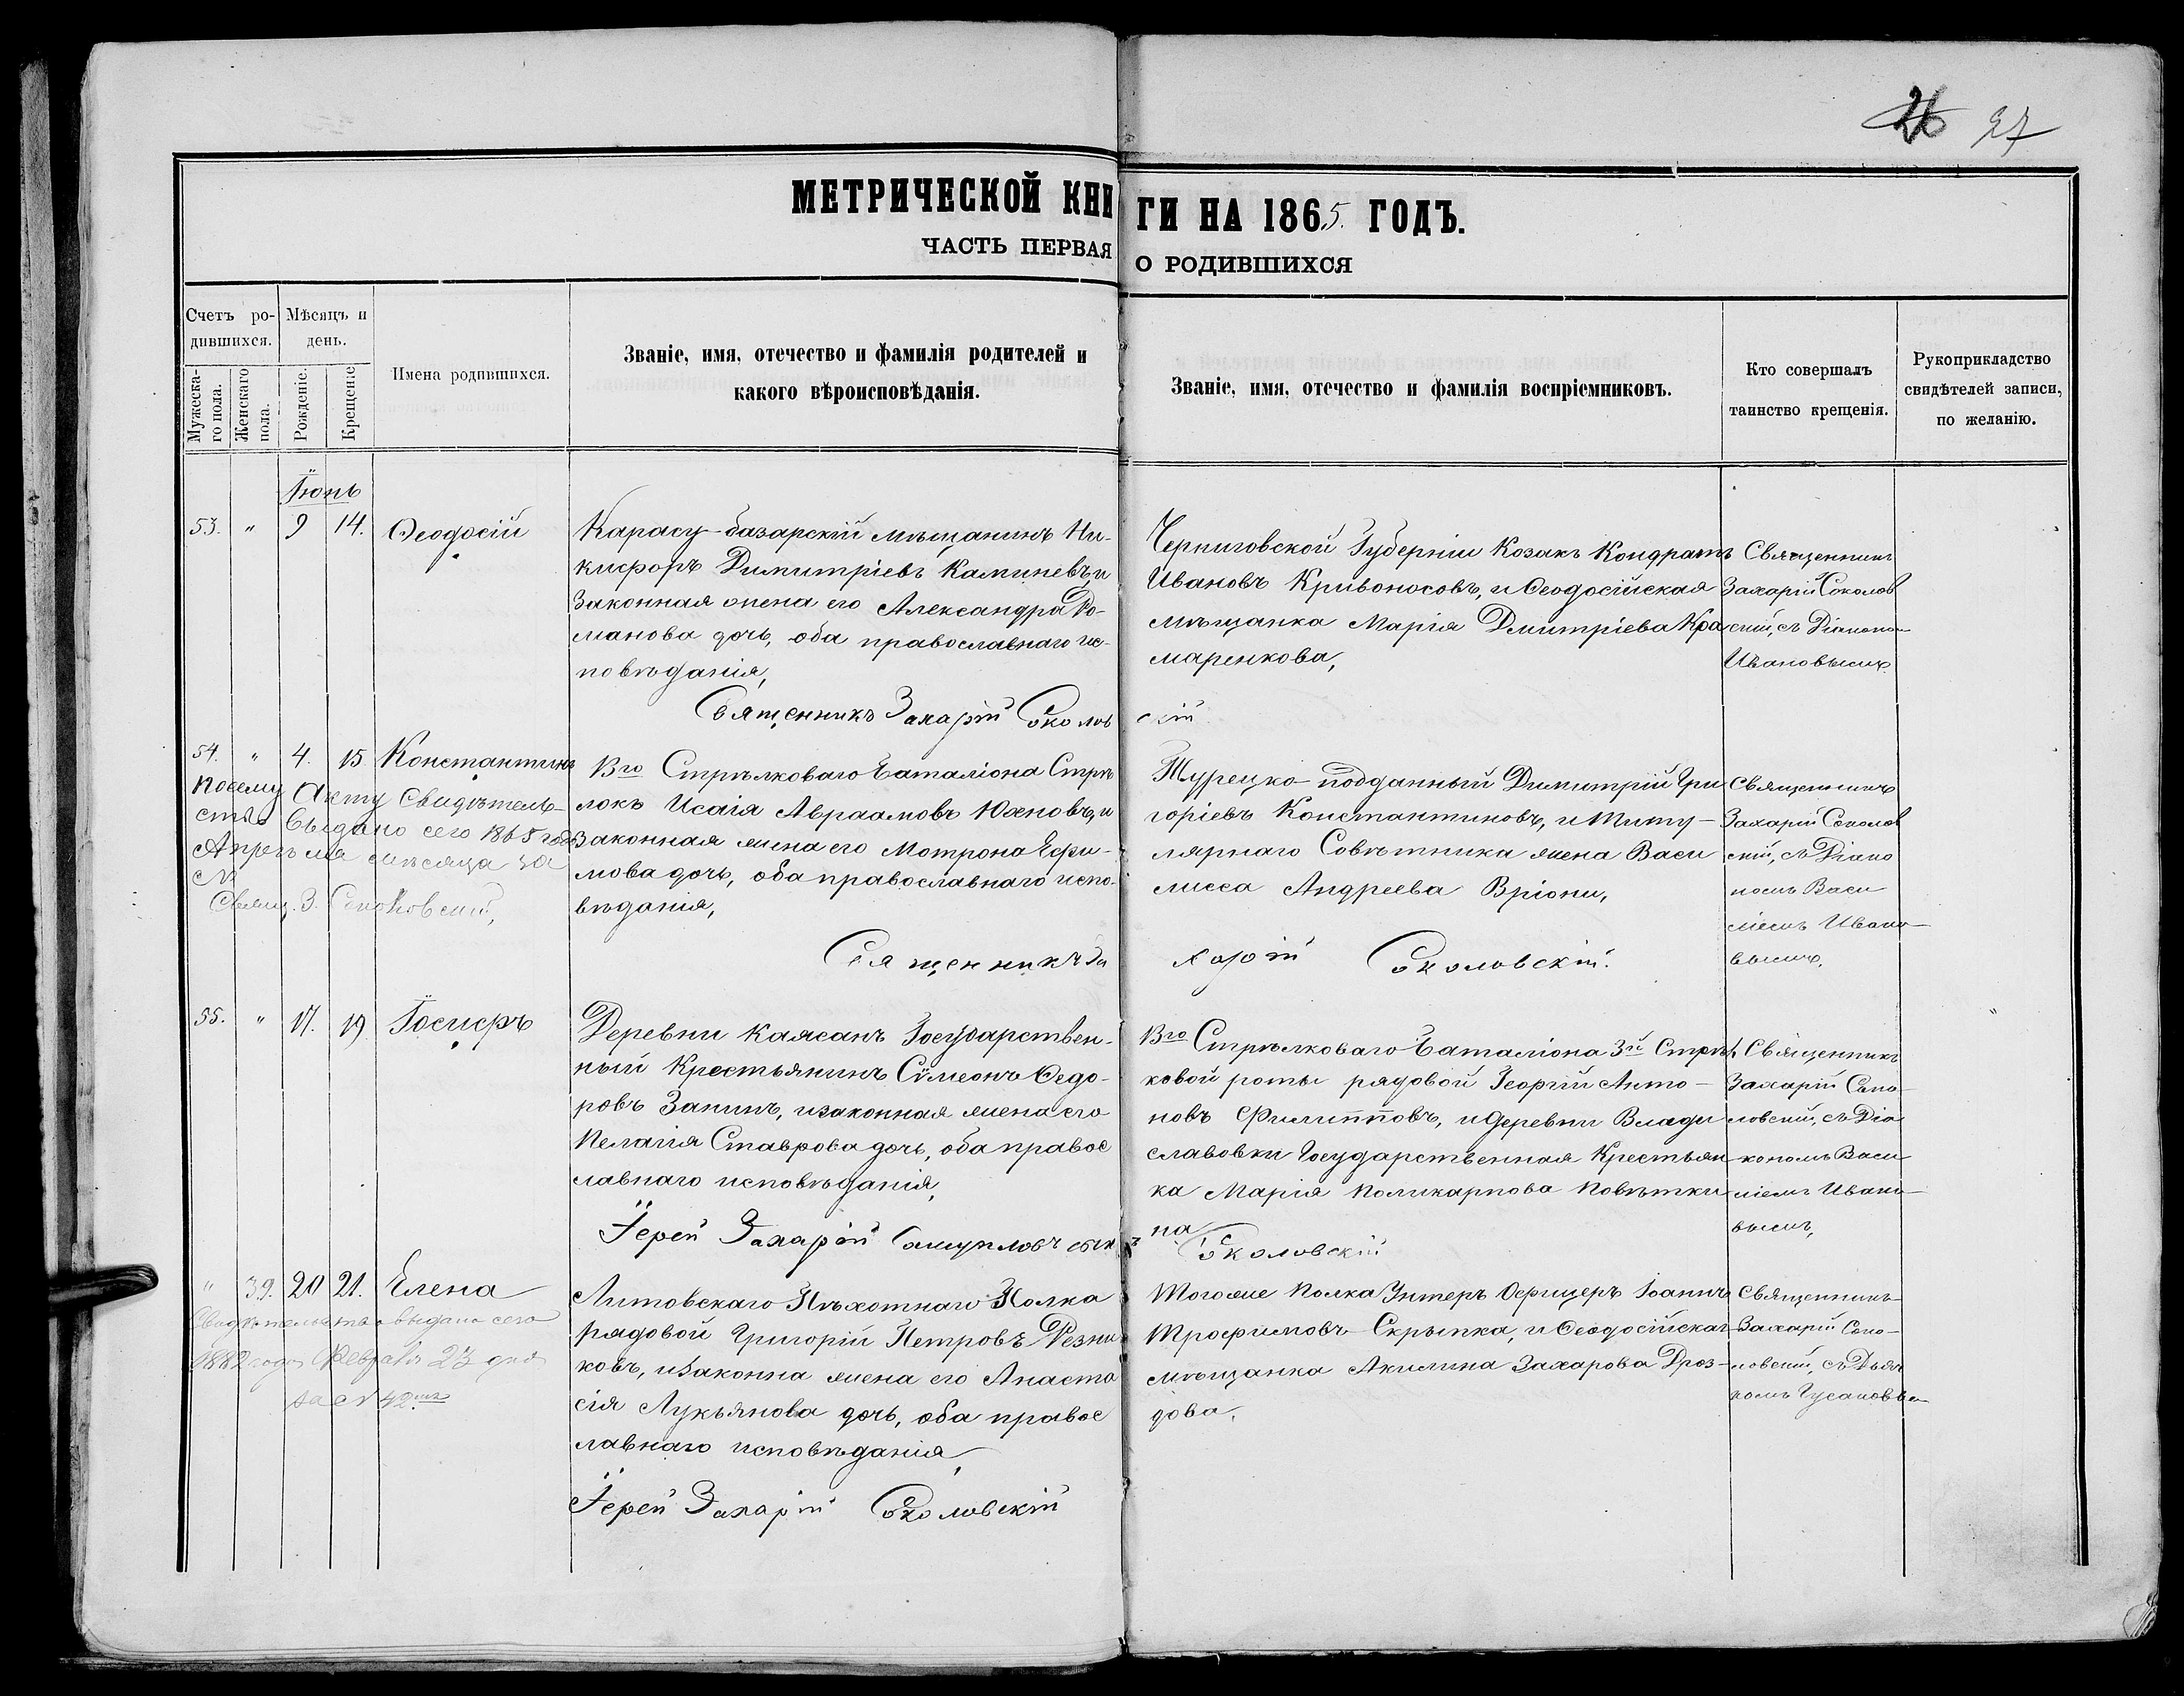 27
МЕТРИЧЕСКОЙ КНИ ГИ НА 1865. ГОДЪ.
ЧАСТЬ ПЕРВАЯ О РОДИВШИХСЯ
Счетъ ро-
дившихся.
Мѣсяцъ и
день.
Мужеска-
го пола.
Женскаго
пола.
Рожденіе.
Крещеніе
Имена родившихся.
Званіе, имя, отечество и фамилія родителей и
какого вѣроисповѣданія.
Званіе, имя, отечество и фамилія воспріемниковъ.
Кто совершалъ
таинство крещенія.
Рукоприкладство
свидѣтелей записи,
по желанію.
Іюнь
53. " 9 14. Ѳеодосій
Карасу-базарскій мѣщанинъ Ни-
кифоръ Димитріевъ Каминевъ, и
законная жена его Александра Ро-
манова дочь, оба православнаго ис-
повѣданія,
Черниговской Губерніи Козакъ Кондратъ
Ивановъ Кривоносовъ, и Ѳеодосійская
мѣщанка Марія Дмитріева Кра
маренкова,
Священникъ
Захарій Соколов
скій, съ Діакона-
Ивановымъ
Священникъ Захарій Соколов скій
54. " 4. 15 Константинъ
Посему Акту Свидѣтель-
ство выдано сего 1865 года
Апрѣля мѣсяца за
№
Свящ. З. Соколовскій,
13го Стрѣлковаго Баталіона Стрѣ
локъ Исаія Авраамовъ Юхновъ, и
законная жена его Мотрона Ефи-
мова дочь, оба православнаго испо-
вѣданія,
Турецко-подданный Димитрій Гри
горіевъ Константиновъ, и Титу-
лярнаго Совѣтника жена Васи
лисса Андреева Вріони,
Священникъ
Захарій Соколов
скій, съ Діако
номъ Васи
ліемъ Ивано-
вымъ,
Священникъ За харій Соколовскій.
55. " 17. 19 Іосифъ
Деревни Каясанъ Государствен-
ный Крестьянинъ Сѵмеонъ Ѳедо-
ровъ Занинъ, и законная жена его
Пелагія Ставрова дочь, оба правос
лавнаго исповѣданія,
13го Стрѣлковаго Баталіона 3й Стрѣл
ковой роты рядовой Георгій Анто-
новъ Филипповъ, и деревни Влади
славовки Государственная Крестьян
ка Марія Поликарпова Повѣтки
на
Священникъ
Захарій Соко-
ловскій, съ Діа
кономъ Васи
ліемъ Ивано-
вымъ,
Іерей Захарій Самуиловъ сынъ Соколовскій
" 39. 20 21. Елена
Свидѣтельство выдано сего
1882 года Февраля 23 дня
за № 42.мъ
Литовскаго Пѣхотнаго Полка
рядовой Григорій Петровъ Резни
ковъ, и законна жена его Анаста
сія Лукьянова дочь, оба правос
лавнаго исповѣданія,
Тогоже Полка Унтеръ Офицеръ Іоаннъ
Трофимовъ Скрыпка, и Ѳеодосійская
мѣщанка Акилина Захарова Дроз-
дова,
Священникъ
Захарій Соко-
ловскій, съ Дьяч
комъ
Іерей Захарій Соколовскій